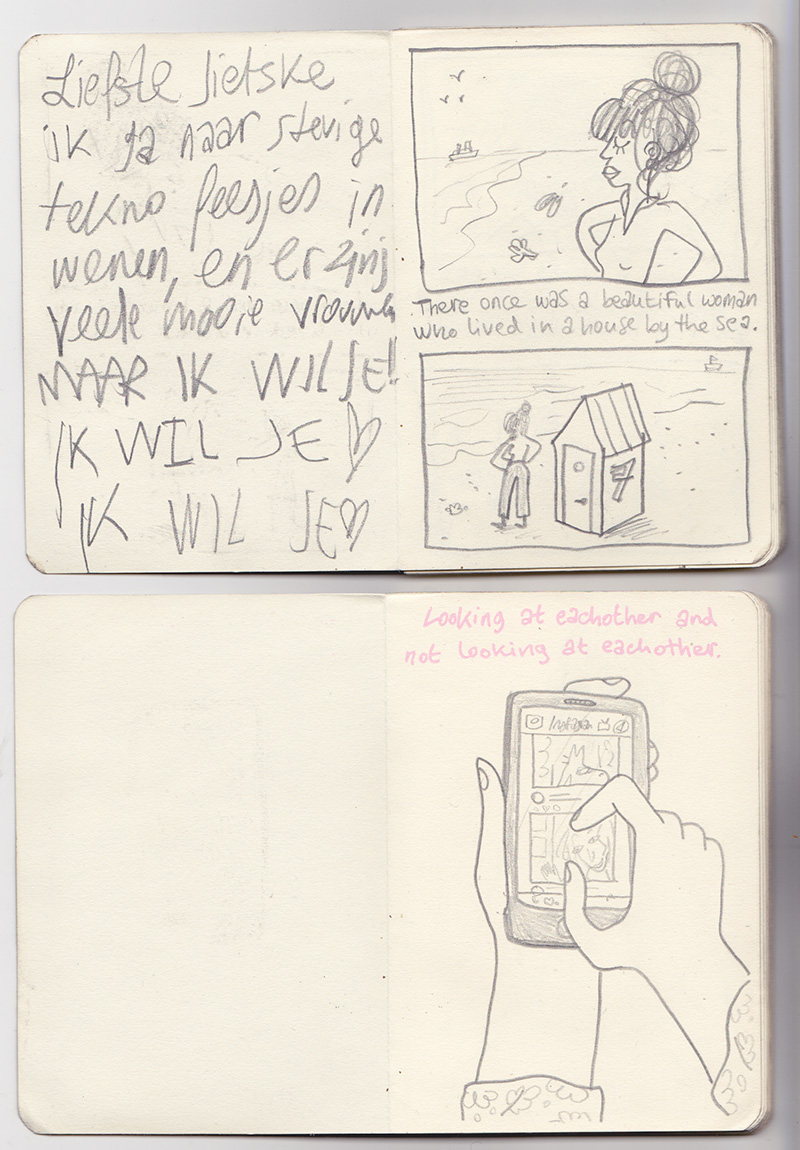 Liefste Jietske
ik ga naar stevige
tekno feesjes in
wenen, en er zijn
veele mooie vrouwen
MAAR IK WIL JE!
IK WIL JE ♡
IK WIL JE ♡
There once was a beautiful woman
who lived in a house by the sea.
Looking at eachother and
not looking at eachother.